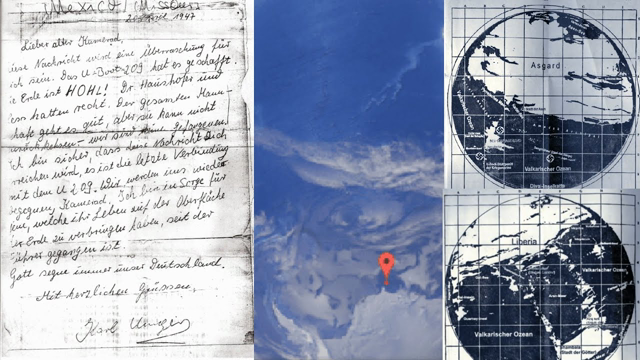 Mexico / Missouri
1947
Lieber alter Kamerad,
iese Nachricht wird eine Überraschung für
ich sein. Das U-Boot 209 hat es geschafft.
ie Erde ist HOHL! Dr. Haushofer und
ess hatten recht. Der gesamten Mann-
haft geht es gut, aber sie kann nicht
wir sind keine Gefangenen.
ch bin sicher, dass diese Nachricht Dich
rreichen wird, es ist die letzte Verbindung
mit dem U 209. Wir werden uns wieder
egegnen, Kamerad. Ich bin in Sorge für
ene, welche ihr Leben auf der Oberfläche
er Erde zu verbringen haben, seit der
ührer gegangen ist.
Gott segne immer unser Deutschland.
Mit herzlichen Grüssen,
Karl Unger
Asgard
Valkarischer Ozean
Diro-Inselkette
Liberia
Valkarischer Ozean
Valkarischer Ozean
Shambala
Stadt der Götter